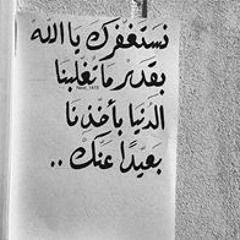 نستغفرك يا الله
بقدر ما تغلبنا
الدنيا بأخذنا
بعيدًا عنك ..